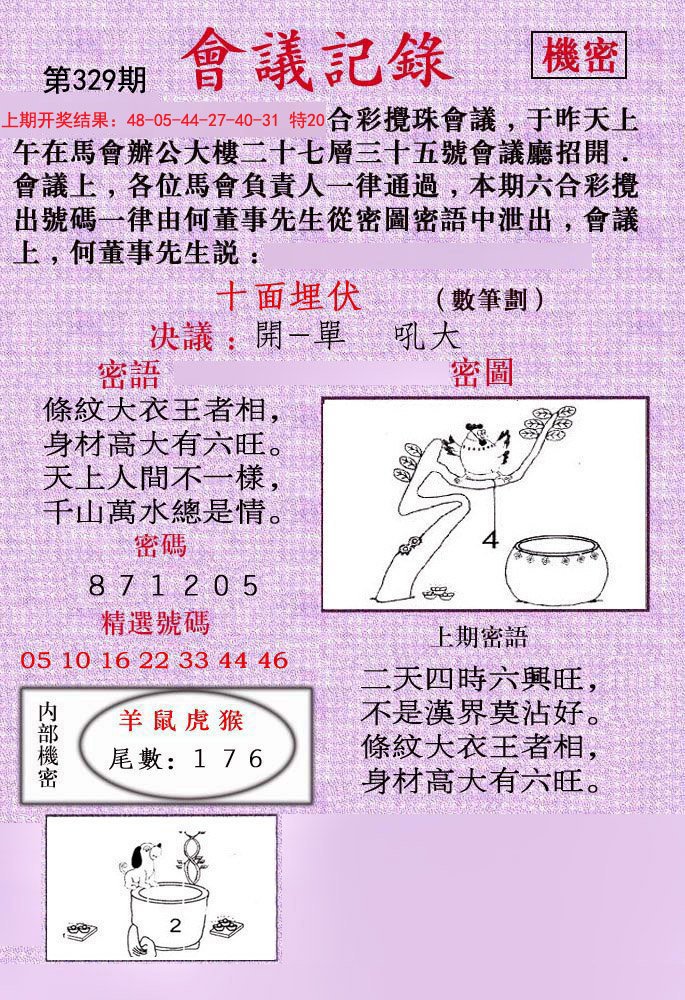 會議記錄
機密
第329期
上期开奖结果：48-05-44-27-40-31 特20
合彩攪珠會議，于昨天上
午在馬會辦公大樓二十七層三十五號會議廳招開．
會議上，各位馬會負責人一律通過，本期六合彩攪
出號碼一律由何董事先生從密圖密語中泄出，會議
上，何董事先生説：
十面埋伏 （數筆劃）
决議：開一單 吼大
密語
條紋大衣王者相，
身材高大有六旺。
天上人間不一樣，
千山萬水總是情。
密碼
871205
精選號碼
05 10 16 22 33 44 46
内部機密
羊鼠虎猴
尾數：176
密圖
4
上期密語
二天四時六興旺，
不是漢界莫沾好。
條紋大衣王者相，
身材高大有六旺。
2